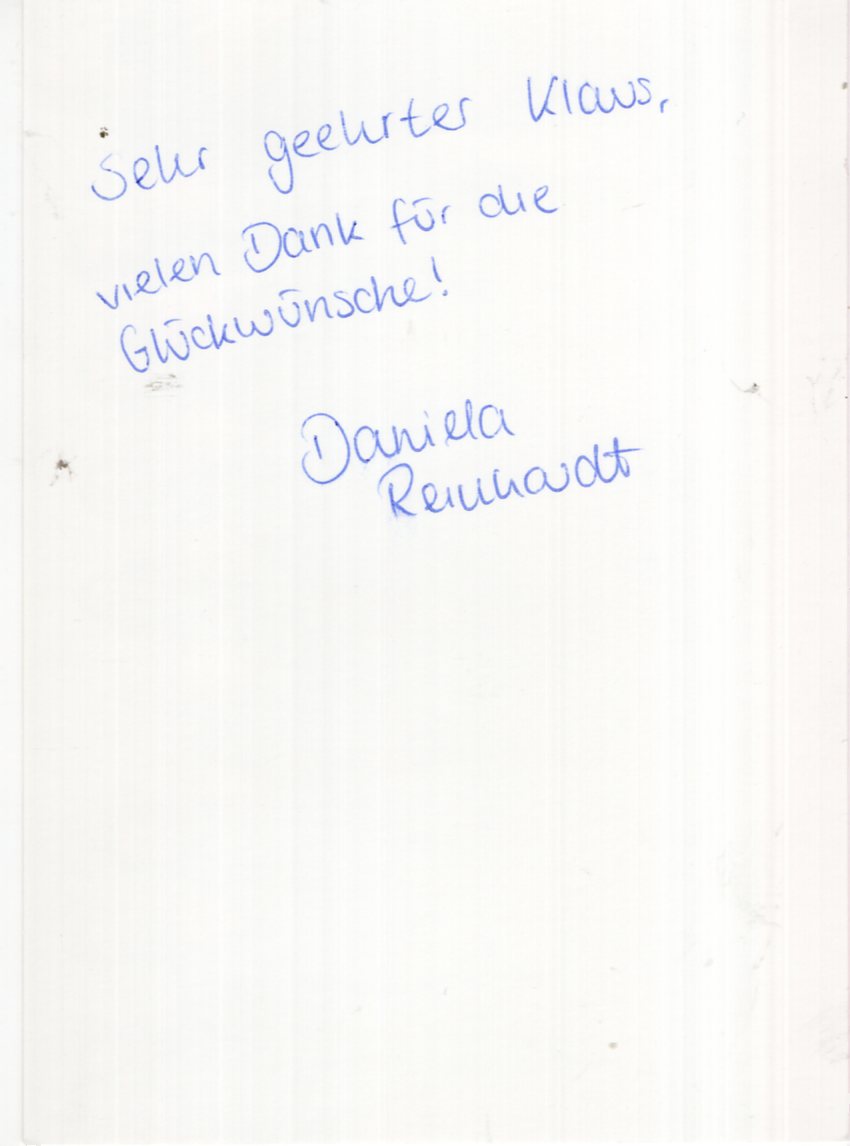 Sehr geehrter Klaus,
vielen Dank für die
Glückwünsche!
Daniela
Reinhardt